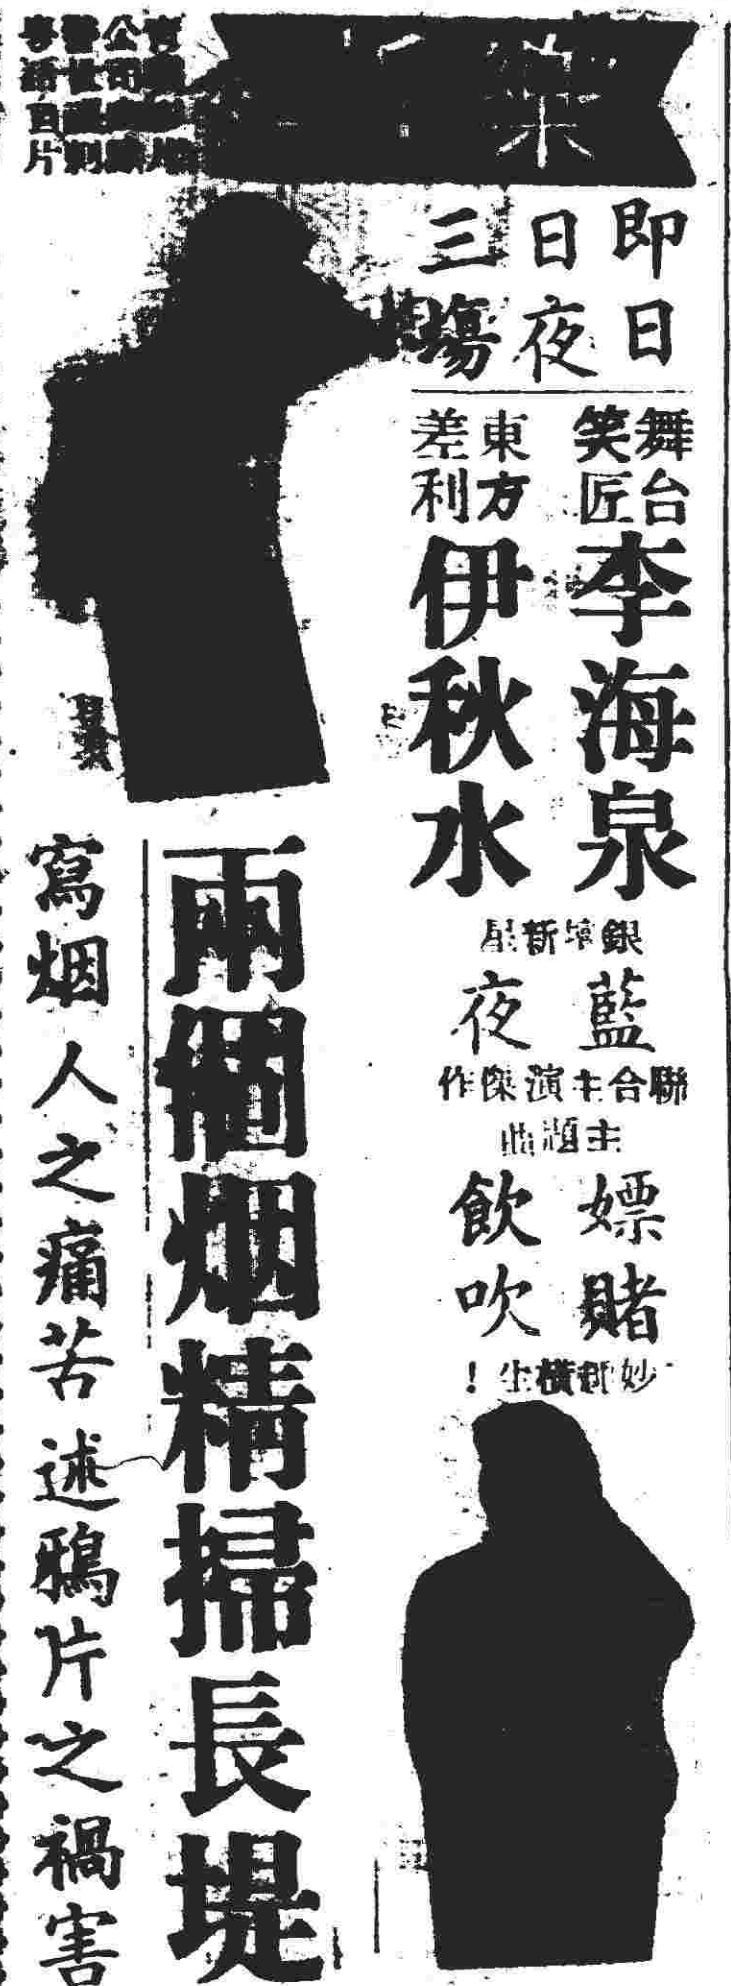 樂
即日
日夜
三場
舞台
笑匠
李海泉
東方
差利
伊秋水
銀壇新星
藍
夜
聯合主演傑作
主題
嫖賭
飲吹
妙趣橫生！
兩個烟精掃長堤
寫烟人之痛苦述鴉片之禍害